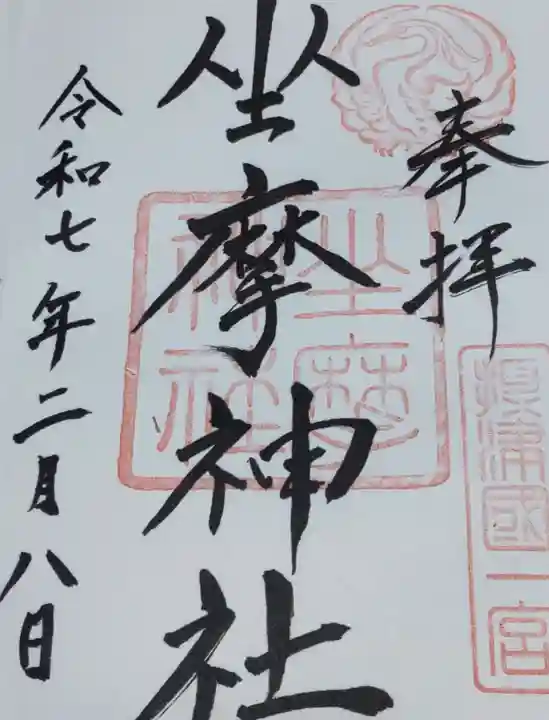 奉拝
摂津國一宮
坐摩神社
坐摩
神社
令和七年二月八日